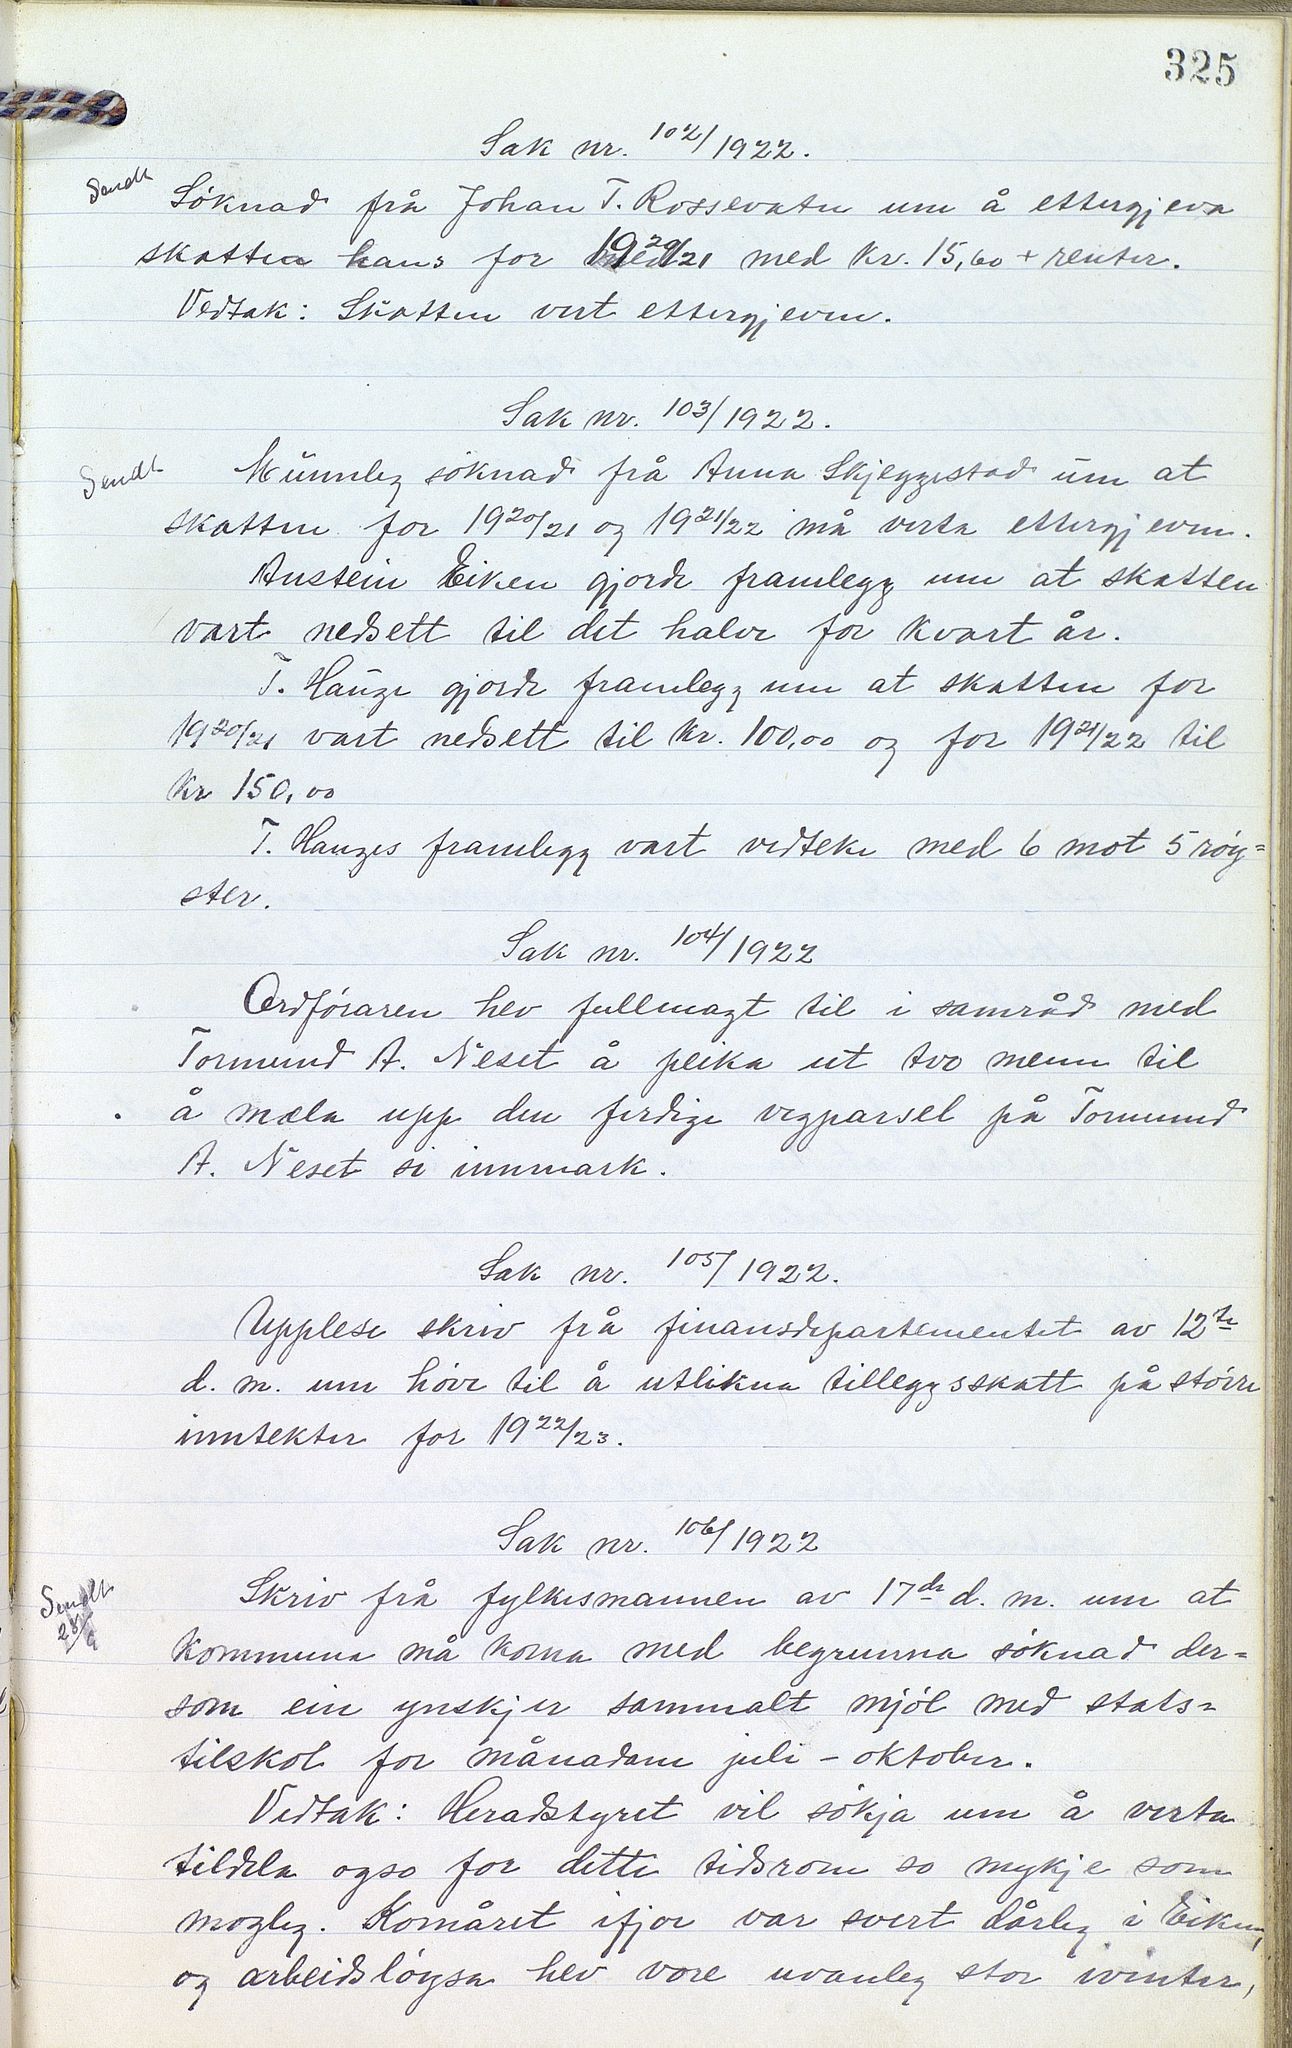 325
Sak nr. 102/1922.
Sendt
Söknad frå Johan T. Rossevatn um å ettergjeva
skatten hans for 1920/21 med kr. 15,60 + renter.
Vedtak: Skatten vert ettergjeven.
Sak nr. 103/1922.
Sendt
Munnleg söknad frå Anna Skjeggestad um at
skatten for 1920/21 og 1921/22 må verta ettergjeven.
Austein Eiken gjorde framlegg um at skatten
vart nedsett til det halve for kvart år.
T. Hauge gjorde framlegg um at skatten for
1920/21 vart nedsett til kr. 100,00 og for 1921/22 til
kr 150,00
T. Hauges framlegg vart vedteke med 6 mot 5 röy=
ster.
Sak nr. 104/1922
Ordföraren hev fullmagt til i samråd med
Tormund A. Neset å peika ut tvo menn til
å mæla upp den ferdige vegparsel på Tormund
A. Neset si innmark.
Sak nr. 105/1922.
Upplese skriv frå finansdepartementet av 12te
d. m. um höve til å utlikna tilleggsskatt på större
inntekter for 1922/23.
Sak nr. 106/1922
Sendt
28/9
Skriv frå fylkesmannen av 17de d. m. um at
kommuna må koma med begrunna söknad der=
som ein ynskjer sammalt mjöl med stats=
tilskot for månadane juli - oktober.
Vedtak: Heradstyret vil sökja um å verta
tildela ogso for dette tidsrom so mykje som
mogleg. Kornåret ifjor var svert dårleg i Eiken,
og arbeidslöysa hev vore uvanleg stor ivinter,